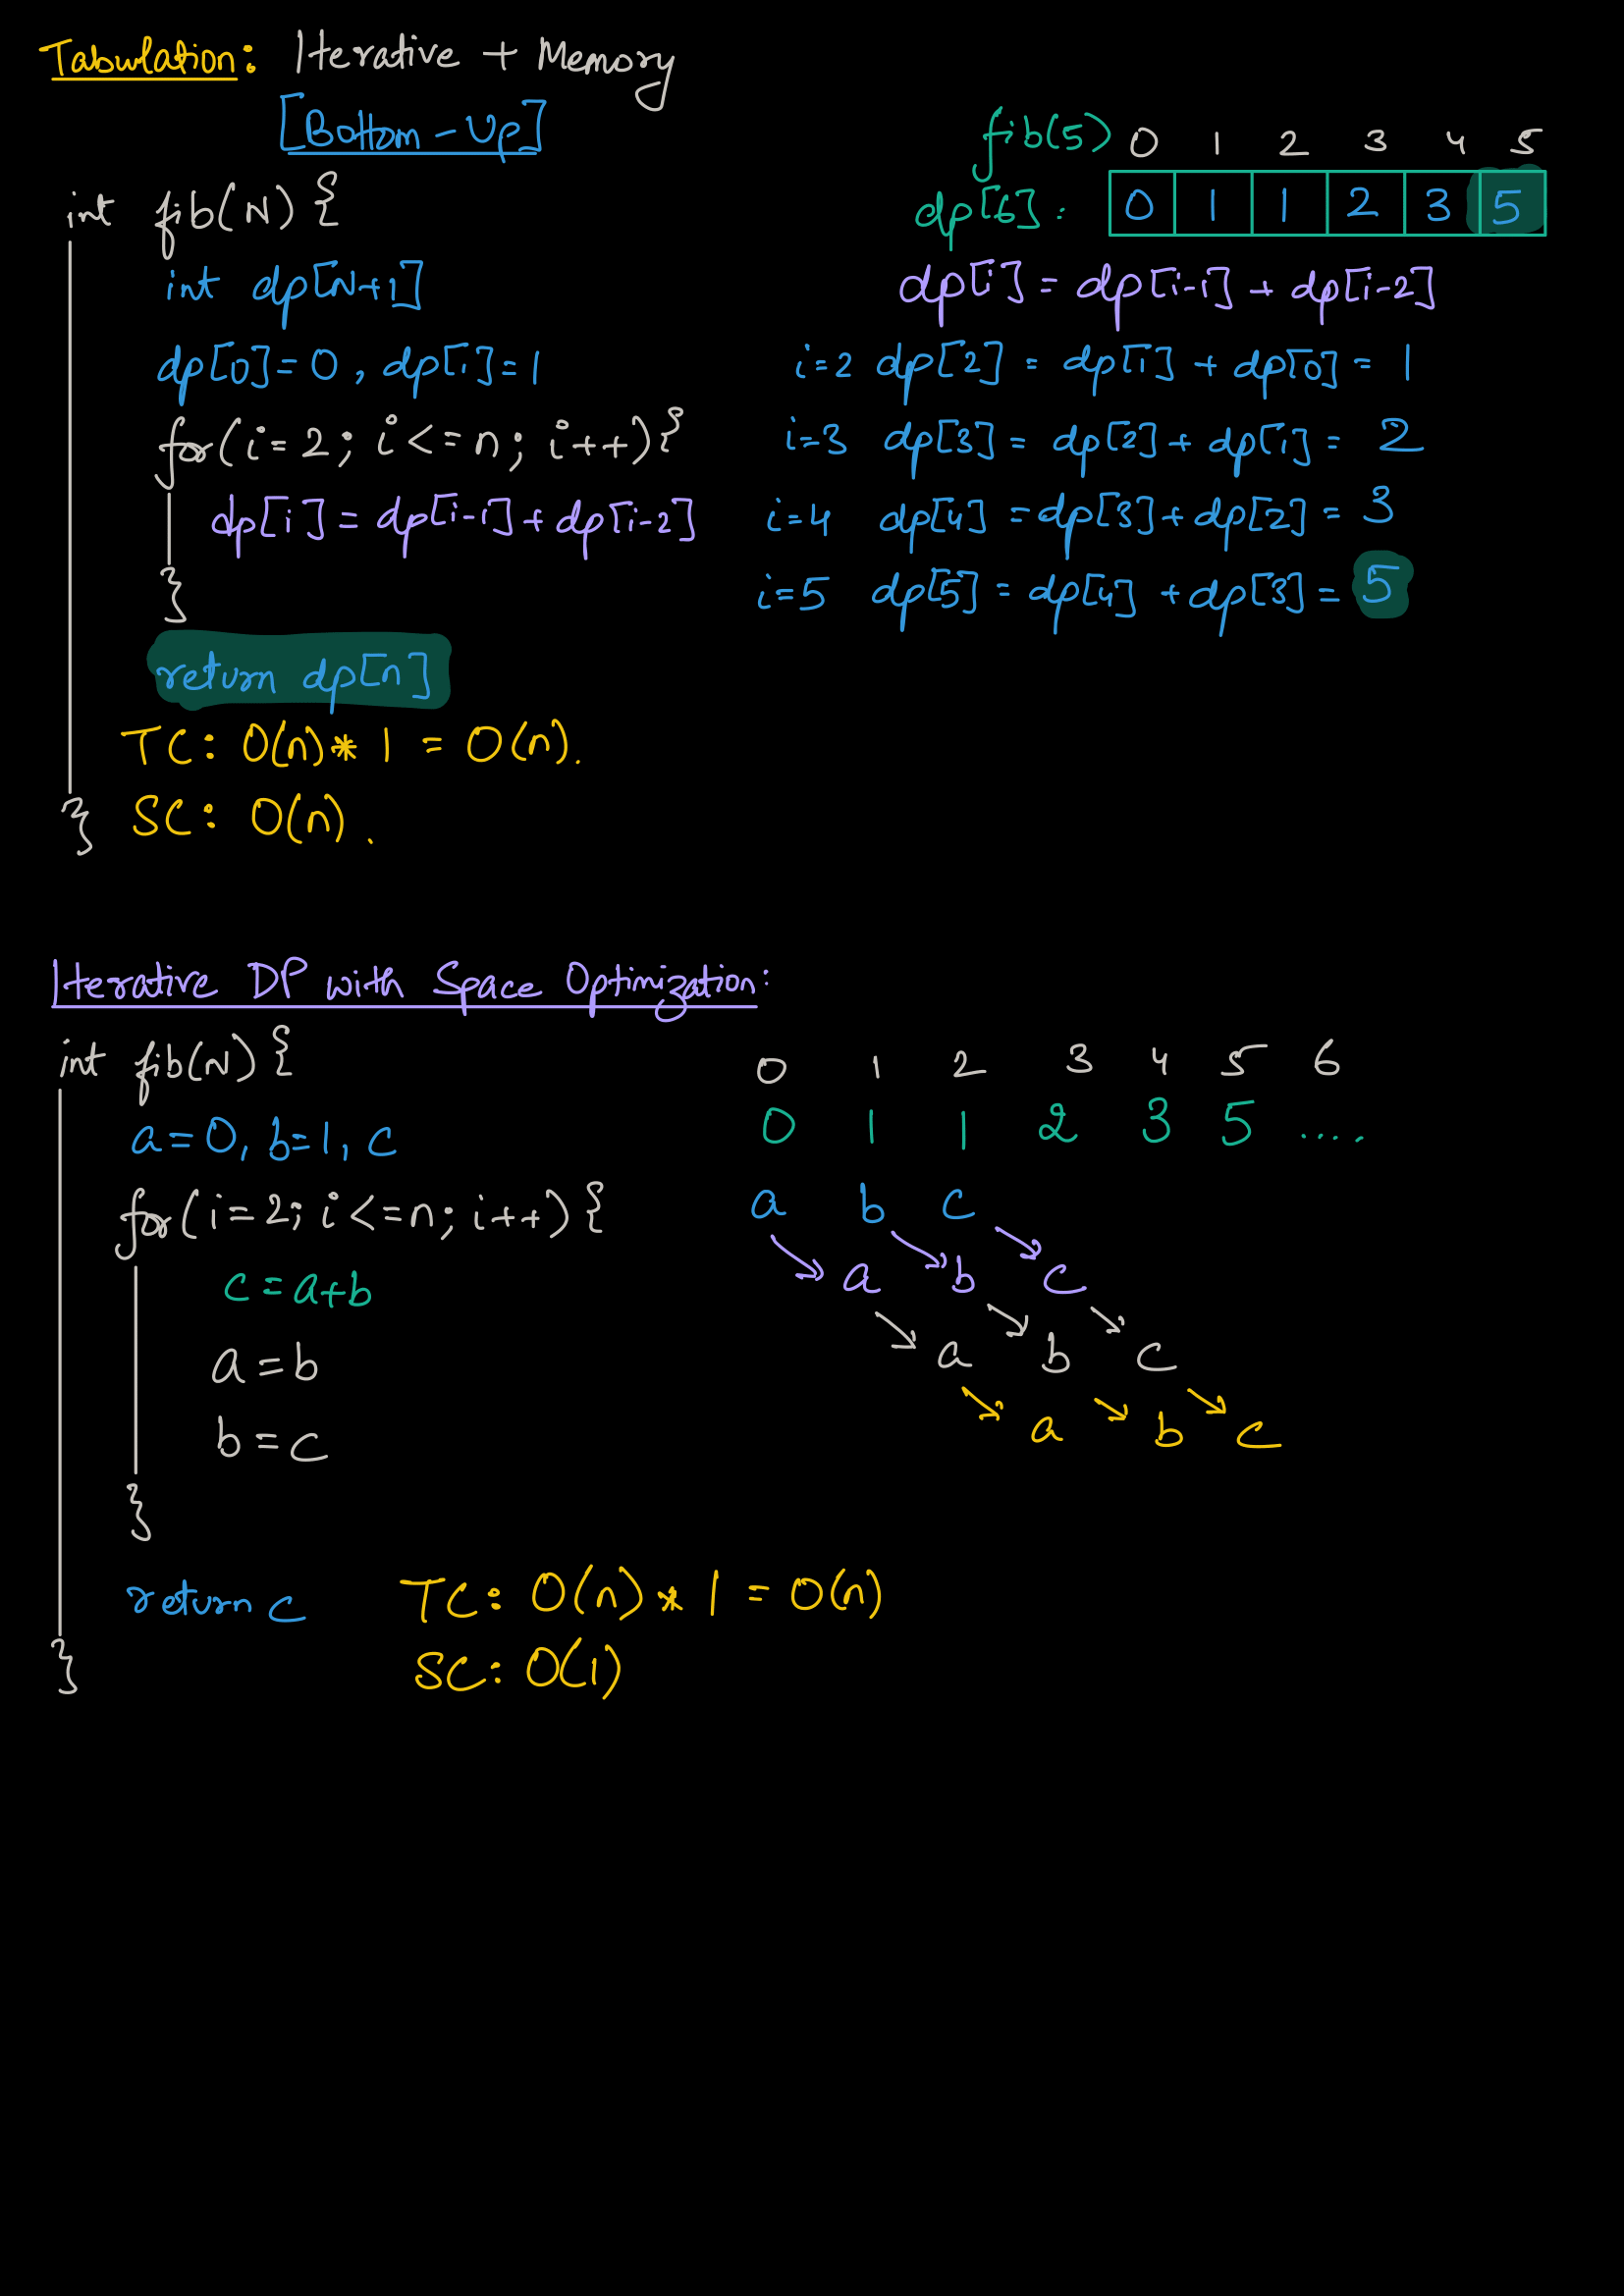 Tabulation: Iterative + Memory
[Bottom-Up]
int fib(N) {
int dp[N+1]
dp[0]=0, dp[1]=1
for(i=2; i<=n; i++){
dp[i] = dp[i-1] + dp[i-2]
}
return dp[n]
TC: O(n) * 1 = O(n).
SC: O(n).
}
fib(5) 0 1 2 3 4 5
dp[6]: 0 1 1 2 3 5
dp[i] = dp[i-1] + dp[i-2]
i=2 dp[2] = dp[1] + dp[0] = 1
i=3 dp[3] = dp[2] + dp[1] = 2
i=4 dp[4] = dp[3] + dp[2] = 3
i=5 dp[5] = dp[4] + dp[3] = 5
Iterative DP with Space Optimization:
int fib(N) {
a=0, b=1, c
for(i=2; i<=n; i++) {
c = a+b
a = b
b = c
}
return c
TC: O(n) * 1 = O(n)
SC: O(1)
}
0 1 2 3 4 5 6
0 1 1 2 3 5 ....
a b c
a b c
a b c
a b c